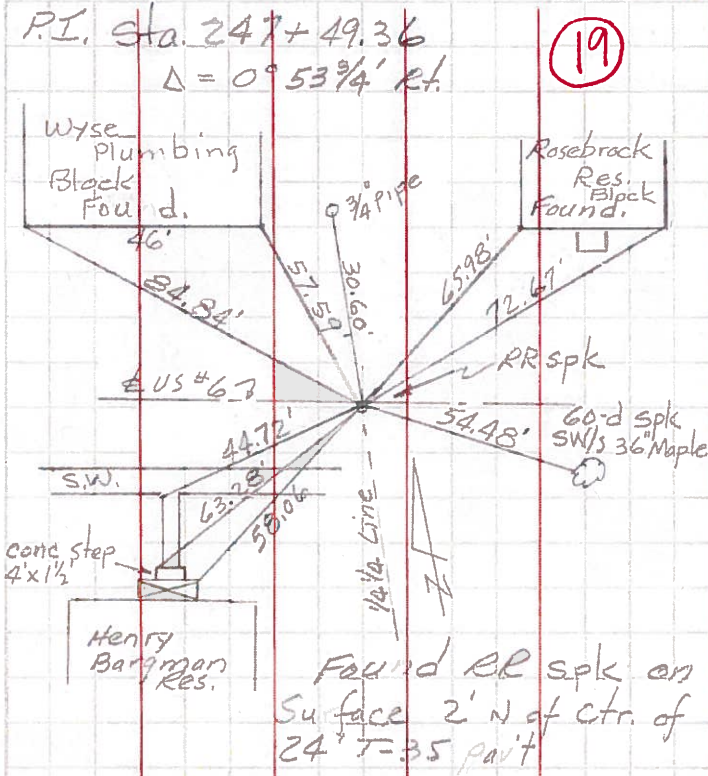 P.I. Sta. 247+49.36
19
Δ = 0° 53 3/4' Rt.
Wyse
Plumbing
Block
Found.
46'
3/4" Pipe
Rosebrock
Res.
Block
Found.
84.84'
57.59'
30.60'
65.98'
72.67'
RR spk
℄ US #6
54.48'
60-d spk
SW/s 36" Maple
44.72'
S.W.
63.28'
58.06
conc step
4'x1½'
¼ ¼ Line
Z
Henry
Bargman
Res.
Found RR spk on
Surface 2' N of Ctr. of
24' T-35 pav't